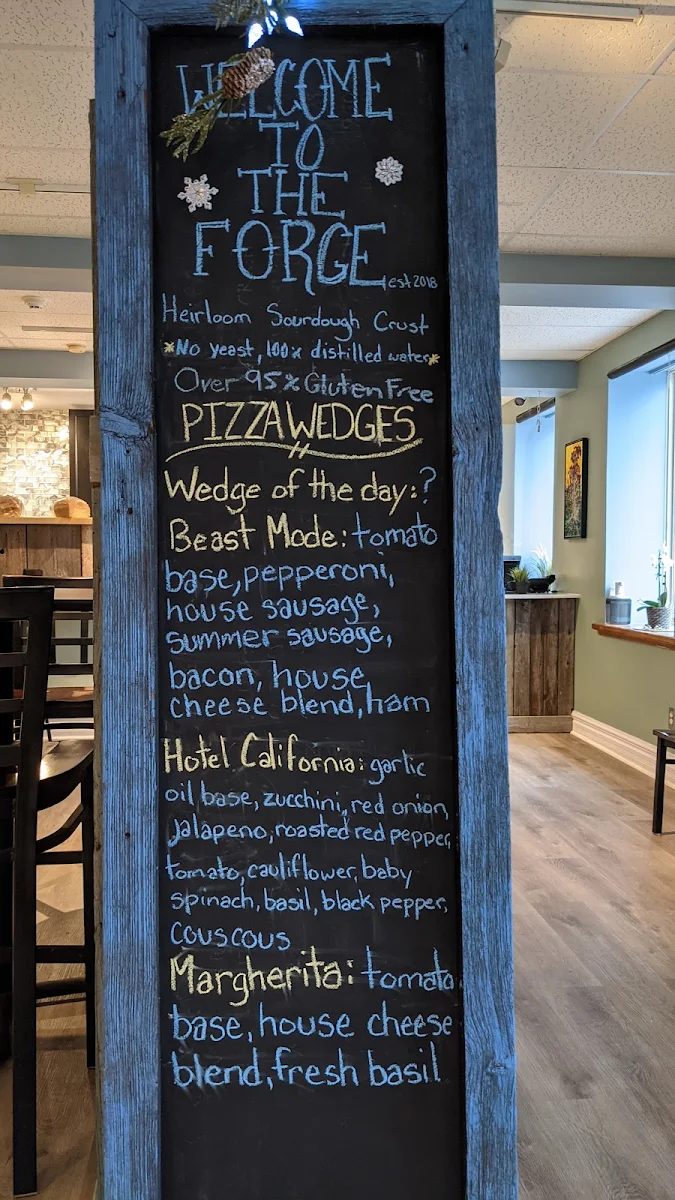 WELCOME
TO
THE
FORGE
est 2018
Heirloom Sourdough Crust
*No yeast, 100% distilled water*
Over 95% Gluten Free
PIZZA WEDGES
Wedge of the day:?
Beast Mode: tomato
base, pepperoni,
house sausage,
summer sausage,
bacon, house
cheese blend, ham
Hotel California: garlic
oil base, zucchini, red onion,
jalapeno, roasted red pepper,
tomato, cauliflower, baby
spinach, basil, black pepper,
couscous
Margherita: tomato
base, house cheese
blend, fresh basil